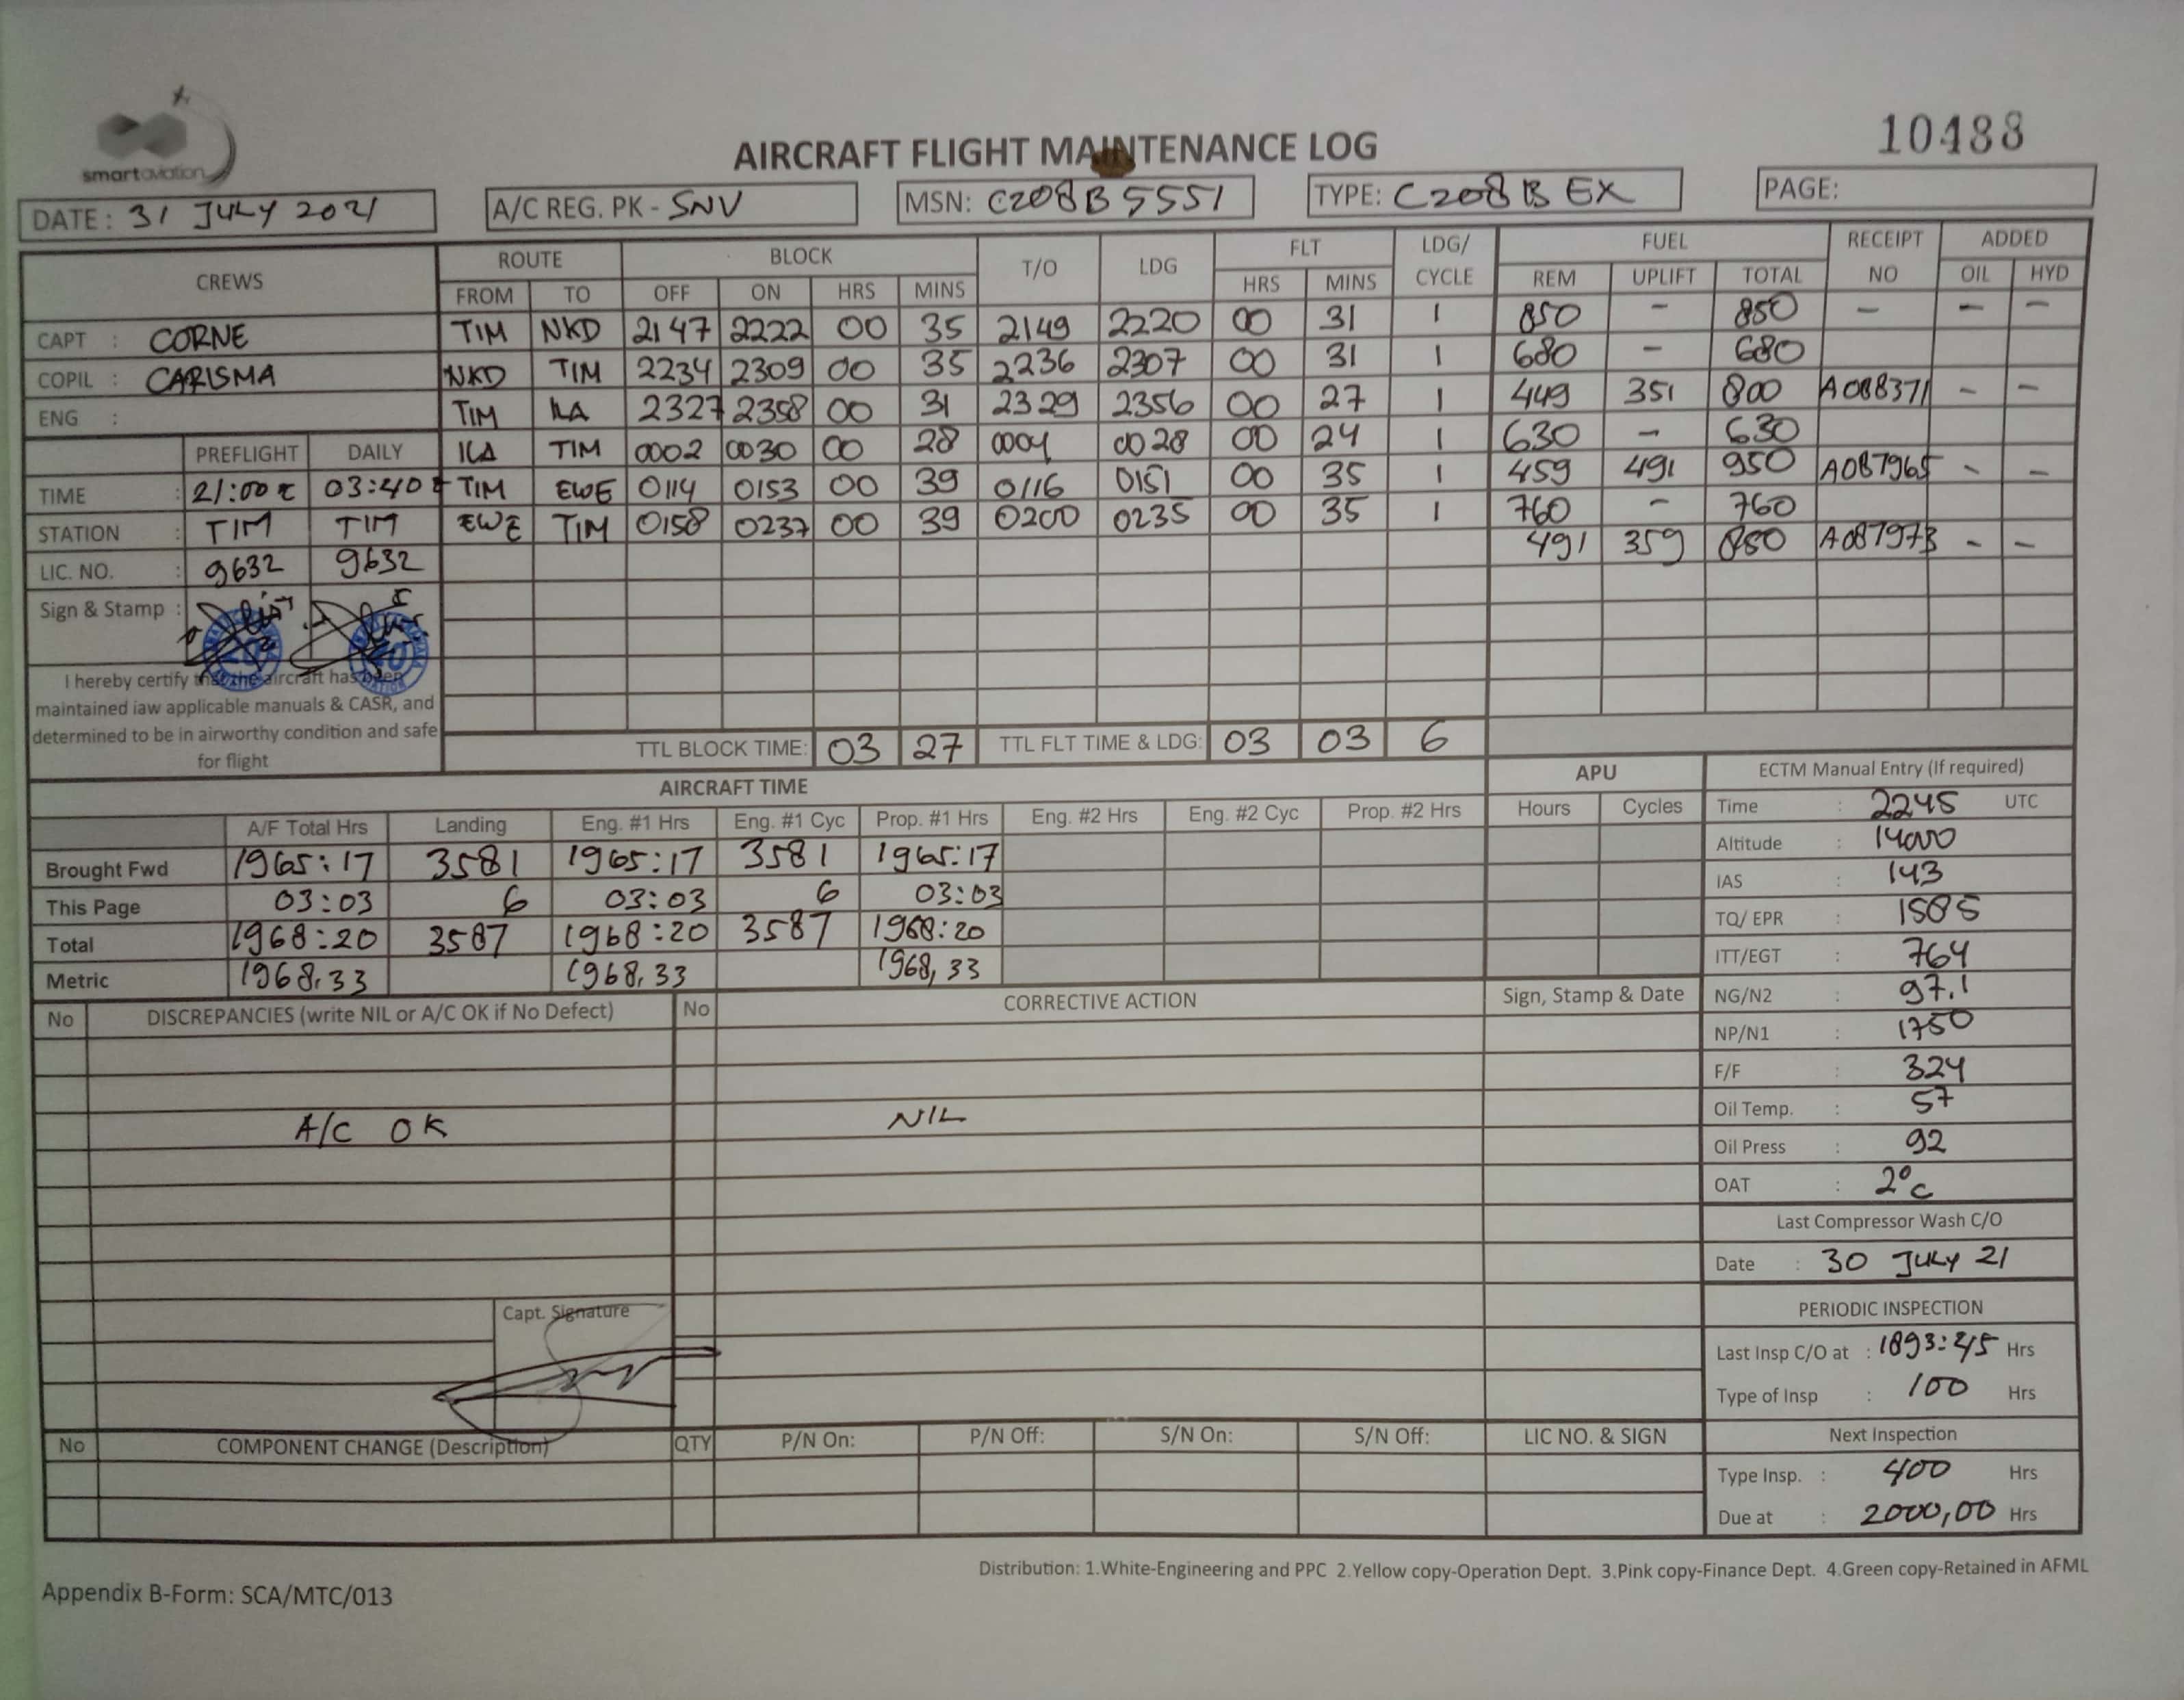 smartaviation
10488
AIRCRAFT FLIGHT MAINTENANCE LOG
DATE : 31 JULY 2021 A/C REG. PK - SNV MSN: C208B5551 TYPE: C208B EX PAGE:
CREWS ROUTE BLOCK T/O LDG FLT LDG/ CYCLE FUEL RECEIPT NO ADDED
FROM TO OFF ON HRS MINS HRS MINS REM UPLIFT TOTAL OIL HYD
CAPT : CORNE TIM NKD 2147 2222 00 35 2149 2220 00 31 1 850 - 850 - - -
COPIL : CARISMA NKD TIM 2234 2309 00 35 2236 2307 00 31 1 680 - 680
ENG : TIM ILA 2327 2358 00 31 2329 2356 00 27 1 449 351 800 A088371 - -
PREFLIGHT DAILY ILA TIM 0002 0030 00 28 0004 0028 00 24 1 630 - 630
TIME : 21:00 z 03:40 z TIM EWE 0114 0153 00 39 0116 0151 00 35 1 459 491 950 A087965 - -
STATION : TIM TIM EWE TIM 0158 0237 00 39 0200 0235 00 35 1 760 - 760
LIC. NO. : 9632 9632 491 359 850 A087973 - -
Sign & Stamp :
I hereby certify that the aircraft has been
maintained iaw applicable manuals & CASR, and
determined to be in airworthy condition and safe
for flight
TTL BLOCK TIME: 03 27 TTL FLT TIME & LDG: 03 03 6
AIRCRAFT TIME APU ECTM Manual Entry (If required)
A/F Total Hrs Landing Eng. #1 Hrs Eng. #1 Cyc Prop. #1 Hrs Eng. #2 Hrs Eng. #2 Cyc Prop. #2 Hrs Hours Cycles Time : 2245 UTC
Brought Fwd 1965:17 3581 1965:17 3581 1965:17 Altitude : 14000
This Page 03:03 6 03:03 6 03:03 IAS : 143
Total 1968:20 3587 1968:20 3587 1968:20 TQ/ EPR : 1585
Metric 1968,33 1968,33 1968,33 ITT/EGT : 764
No DISCREPANCIES (write NIL or A/C OK if No Defect) No CORRECTIVE ACTION Sign, Stamp & Date NG/N2 : 97.1
NP/N1 : 1750
F/F : 324
A/C OK NIL Oil Temp. : 57
Oil Press : 92
OAT : 2°C
Last Compressor Wash C/O
Date : 30 JULY 21
Capt. Signature PERIODIC INSPECTION
Last Insp C/O at : 1893:45 Hrs
Type of Insp : 100 Hrs
No COMPONENT CHANGE (Description) QTY P/N On: P/N Off: S/N On: S/N Off: LIC NO. & SIGN Next Inspection
Type Insp. : 400 Hrs
Due at : 2000,00 Hrs
Distribution: 1.White-Engineering and PPC 2.Yellow copy-Operation Dept. 3.Pink copy-Finance Dept. 4.Green copy-Retained in AFML
Appendix B-Form: SCA/MTC/013